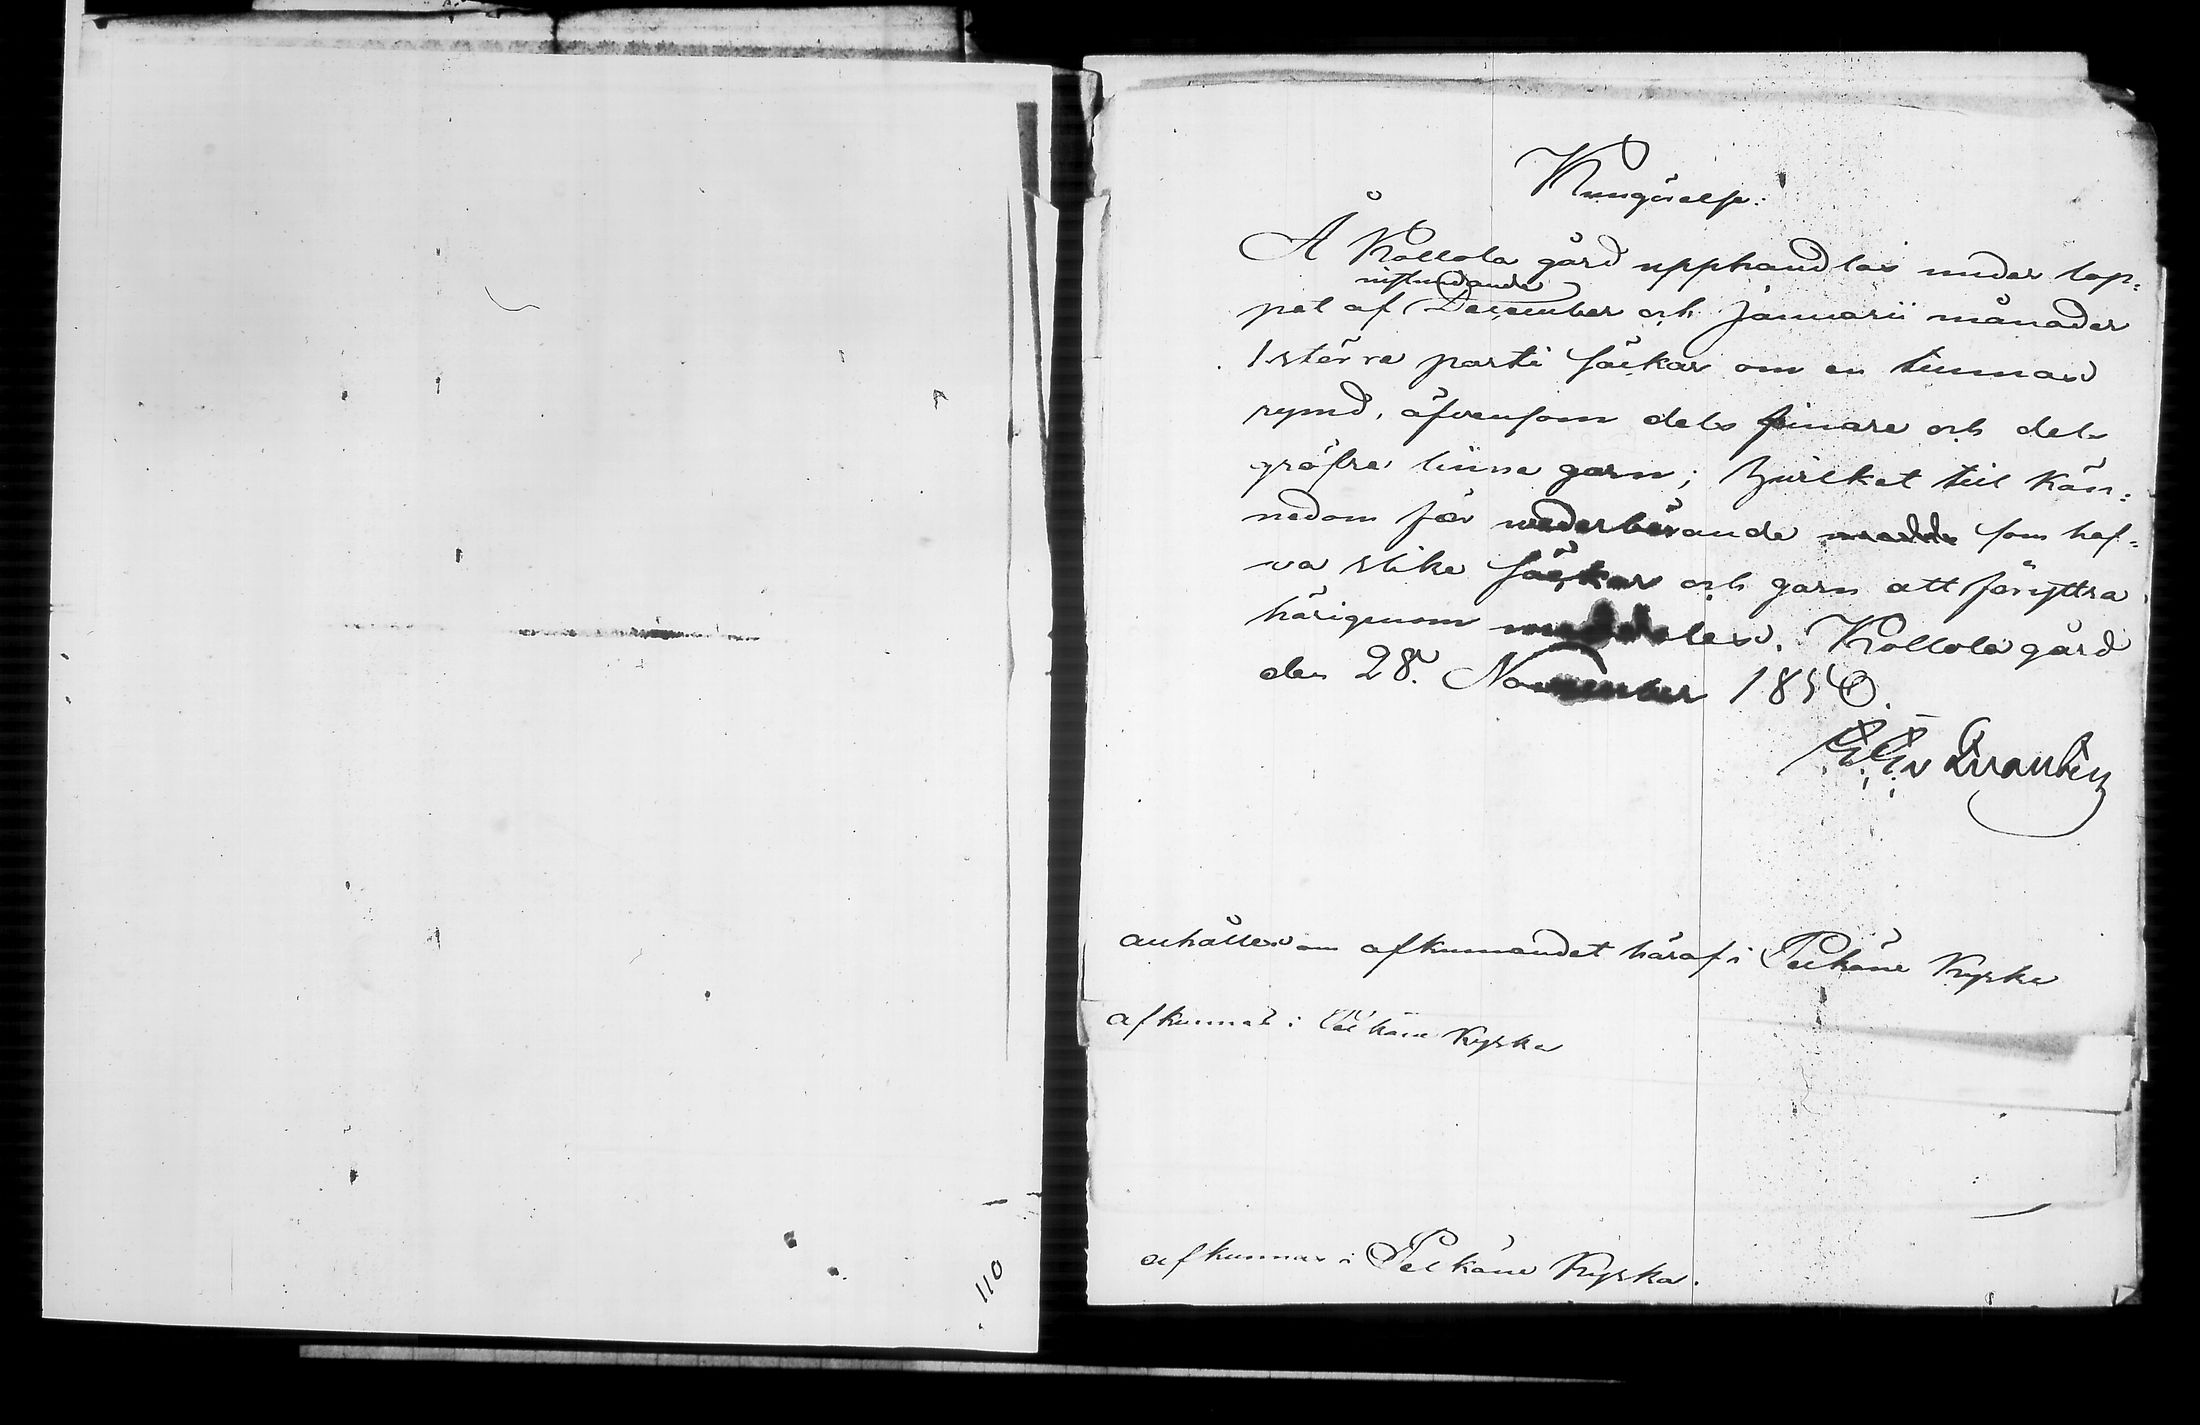 Kungörelse.
Å Kollola gård upphandlas under lop=
instundande
pet af December och Januarii månader
1 större parti säckar om en tunnas
rymd, äfvensom dels finare och dels
gröfre linne garn; hvilket till kän=
nedom för wederbörande som haf=
va slike säckar och garn att föryttra
härigenom meddeles. Kollola gård
den 28. November 1850.
anhålles om afkunnandet häraf i Pelkäne Kyrka
afkunnat i Pelkäne Kyrka
afkunnas i Pelkäne Kyrka.
110